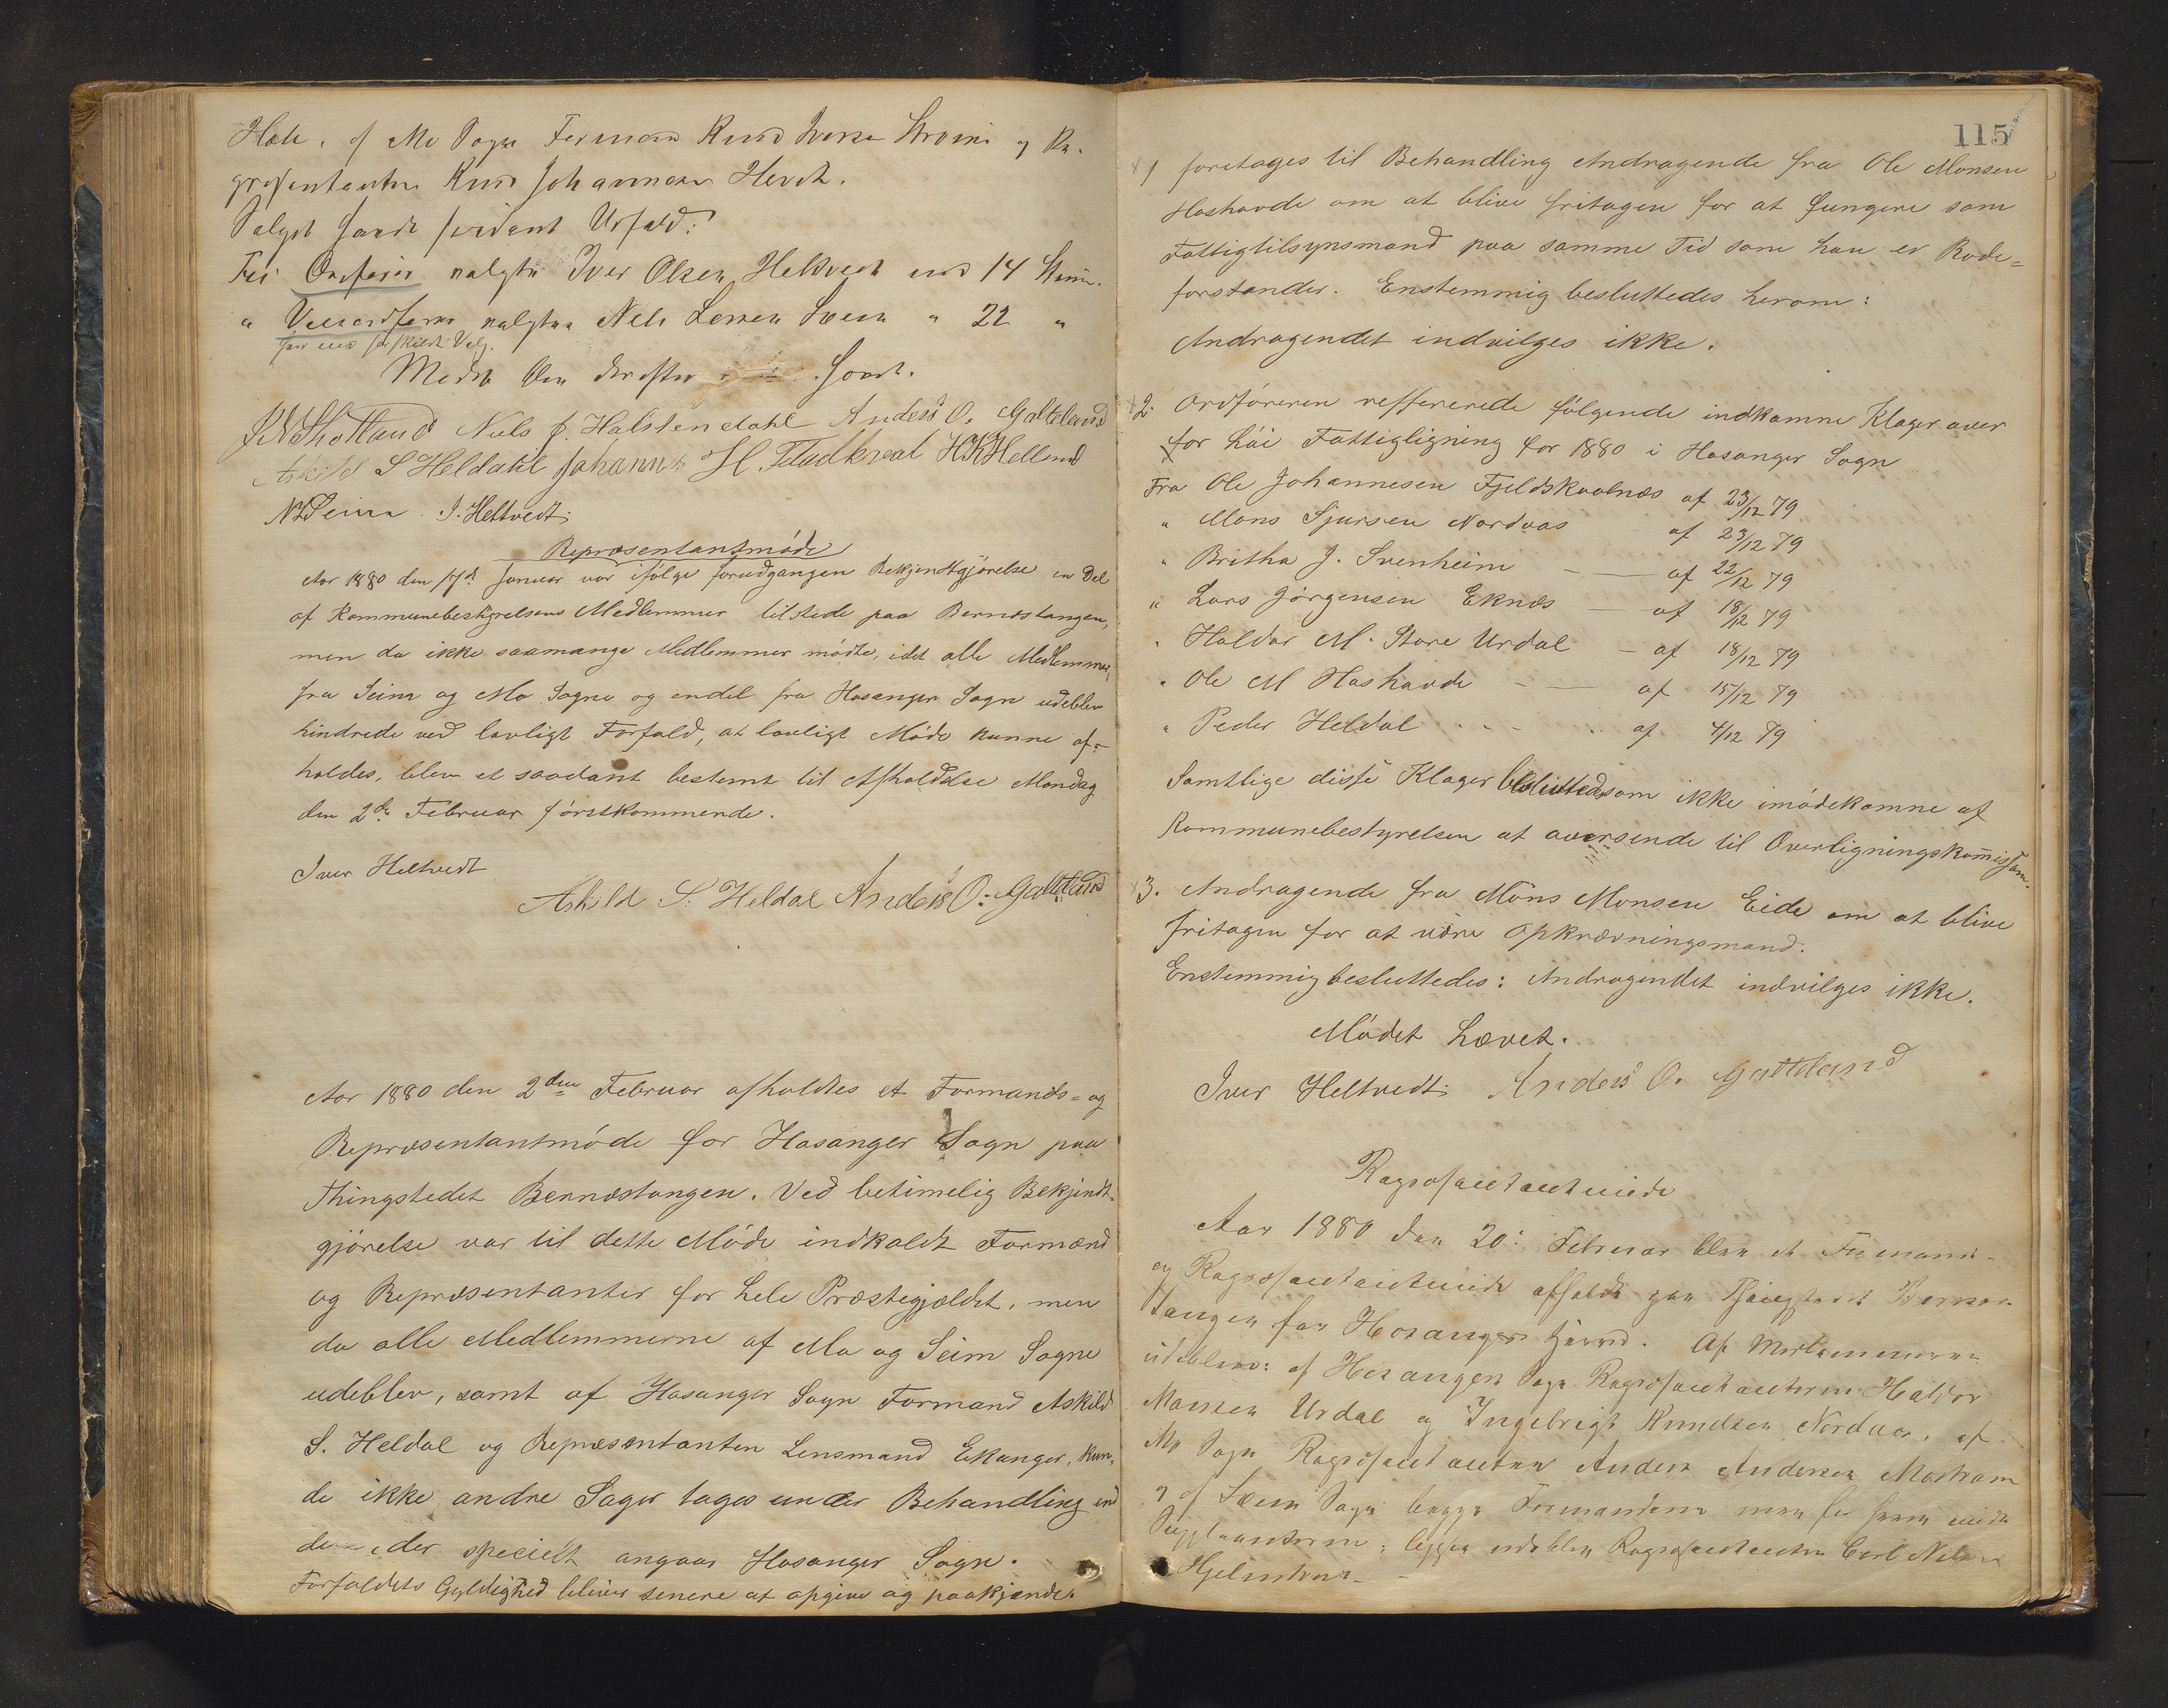 Hole, af Mo Sogn Formand Knud Iversen og Re-
præsentanten Knud Johannesen
Valget havde saadant Udfald:
Til Ordfører valgtes Iver Olsen Heltvedt med 14 Stem.
" Viceordfører valgtes Nels " 22 "
særskilt Valg.
Mødet blev derefter hævet.
Nils J. Halstendahl Anders O. Galteland
Askild S Heldahl Johannes H. HKHelland
I. Heltvedt
Repræsentantmøde
Aar 1880 den 17de Januar var ifølge forudgangen Bekjendtgjørelse en Del
af Kommunebestyrelsens Medlemmer tilstede paa Bernestangen,
men da ikke saamange Medlemmer mødte, idet alle Medlemmer
fra Seim og Mo Sogne og endel fra Hosanger Sogn udeblev
hindrede ved lovligt Forfald, at lovligt Møde kunne af-
holdes, blev et saadant bestemt til Afholdelse Mandag
den 2de Februar førstkommende.
Iver Heltvedt
Askild S. Heldal Anders O. Galteland
Aar 1880 den 2den Februar afholdtes et Formands- og
Repræsentantmøde for Hosanger Sogn paa
Thingstedet Bernestangen. Ved betimelig Bekjendt-
gjørelse var til dette Møde indkaldt Formænd
og Repræsentanter for hele Præstegjældet, men
da alle Medlemmerne af Mo og Seim Sogne
udeblev, samt af Hosanger Sogn Formand Askild
S. Heldal og Repræsentanten Lensmand Ekanger, kun-
de ikke andre Sager tages under Behandling end
de der specielt angaar Hosanger Sogn.
Forfaldets Gyldighed bliver senere at opgive og paakjende.
115
1 foretages til Behandling Andragende fra Ole Monsen
Hoshovde om at blive fritagen for at fungere som
Fattigtilsynsmand paa samme Tid som han er Rode-
forstander. Enstemmig besluttedes herom:
Andragendet indvilges ikke.
2. Ordføreren reffererede følgende indkomne Klager over
for høi Fattigligning for 1880 i Hosanger Sogn
Fra Ole Johannesen Fjeldskaalnes af 23/12 79
" Mons Sjursen Nordaas af 23/12 79
" Britha J. Svenheim af 22/12 79
" Lars Jørgensen Eknes af 18/12 79
" Haldor M. Store Urdal af 18/12 79
" Ole M Hoshovde af 15/12 79
" Peder Heldal af 4/12 79
Samtlige disse Klager besluttedes som ikke imødekomne af
Kommunebestyrelsen at oversende til
3. Andragende fra Mons Monsen Eide om at blive
fritagen for at være Opkrævningsmand.
Enstemmig besluttedes: Andragendet indvilges ikke.
Mødet hævet.
Iver Heltvedt Anders O. Galteland
Repræsentantmøde
Aar 1880 den 20: Februar blev et Formand-
og Repræsentantmøde afholdt paa Thingstedet Bernes-
tangen for Hosanger Herred. Af Medlemmerne
udeblev: af Hosanger Sogn Repræsentanterne Haldor
Monsen Urdal og Ingebrigt Knudsen Nordaas, af
Mo Sogn Repræsentanten Anders Andersen Mostrøm
og af Seim Sogn begge Formændene men for mødte
Suppleanterne; ligesaa udeblev Repræsentanten Carl Nilsen
Hjelmtvedt